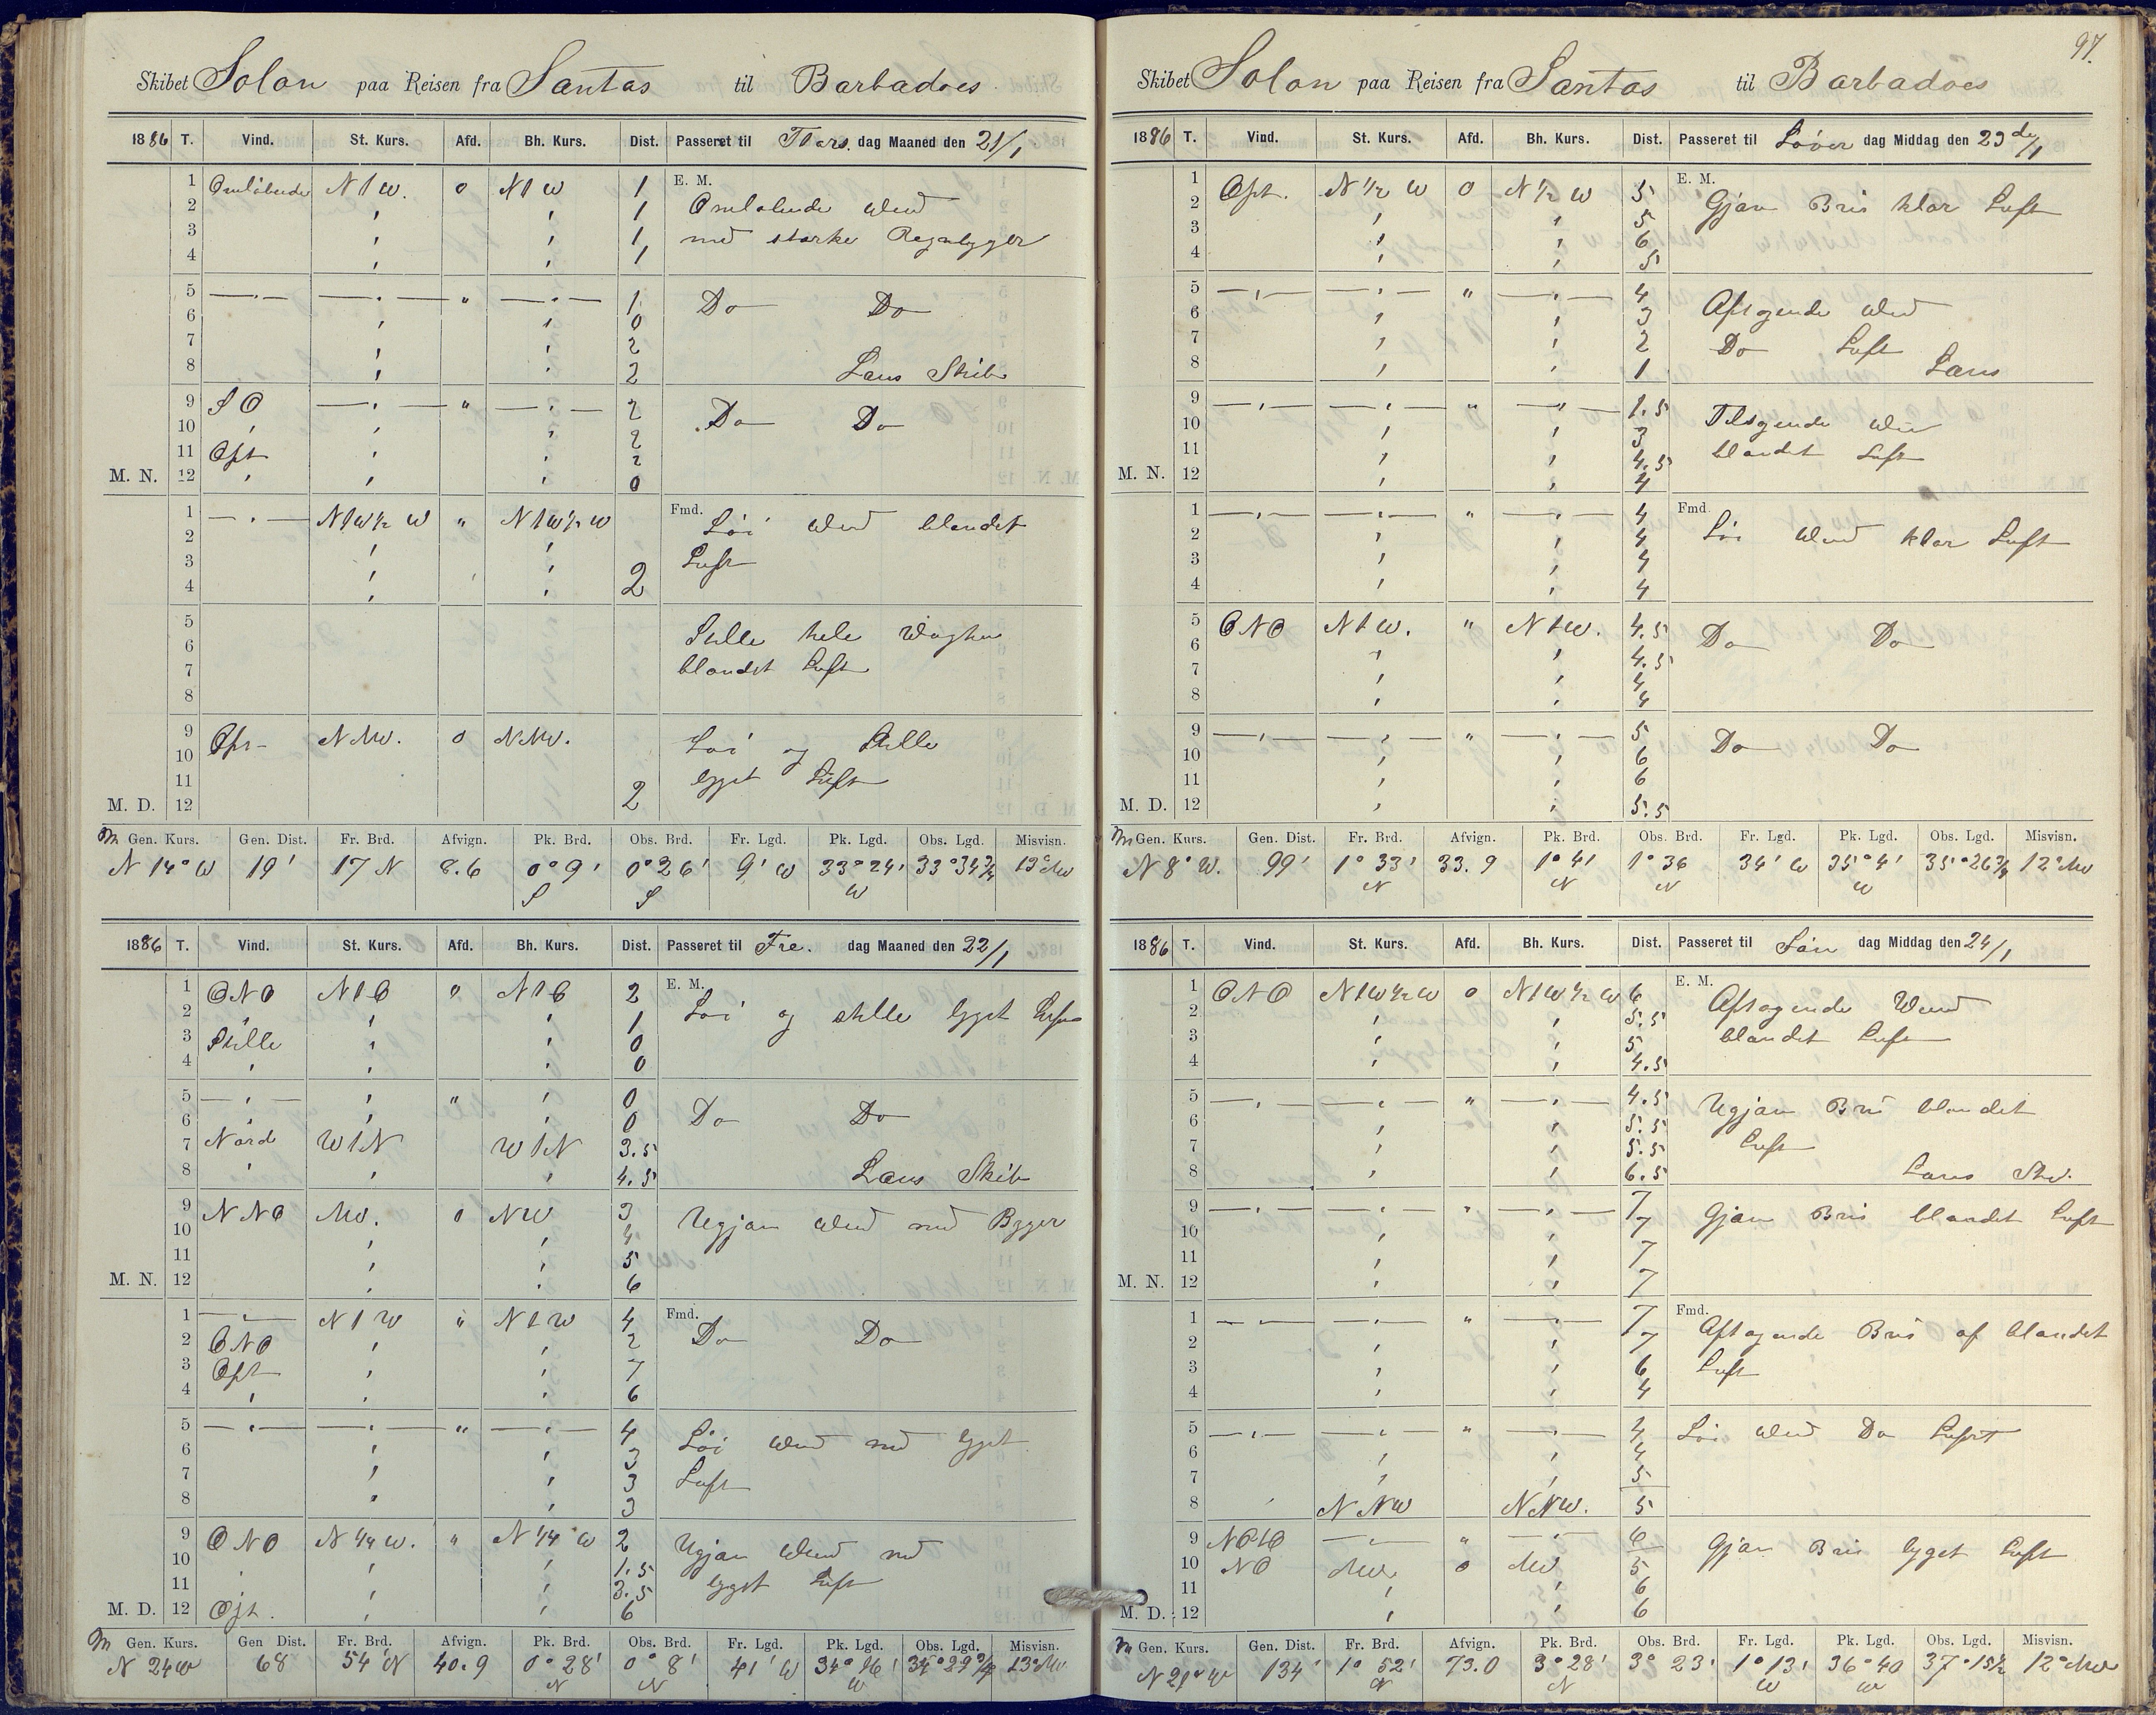 Skibet Solon paa Reisen fra Santos til Barbadoes
1886 T. Vind. St. Kurs. Afd. Bh. Kurs. Dist. Passeret til Thors. dag Maaned den 21/1
1 Omløbende N t W. 0 N t W 1 E. M.
2 " " 1 Omløbende Wind
3 " " 1 med stærke Regnbyger
4 " " 1
5 — " — — " — " — " — 1 Do Do
6 " " 0
7 " " 2
8 " " 2 Lans Skib
9 S O — " — " — " — 2 Do Do
10 " " " 2
11 Ost " " 2
M. N. 12 " " " 0
1 — " — N t W ½ W " N t W ½ W Fmd. Løi Wind blandet
2 " " Luft
3 " "
4 " " 2
5 Stille hele Vagten
6 blandet Luft
7
8
9 Ost N NW. 0 N NW. Løi og Stille
10 bygget Luft
11
M. D. 12 2
M Gen. Kurs. Gen. Dist. Fr. Brd. Afvign. Pk. Brd. Obs. Brd. Fr. Lgd. Pk. Lgd. Obs. Lgd. Misvisn.
N 14° W 19' 17 N 8.6 0° 9' S 0° 26' S 9' W 33° 24' W 33° 34¾ 13° NW
1886 T. Vind. St. Kurs. Afd. Bh. Kurs. Dist. Passeret til Fre. dag Maaned den 22/1
1 ONO N t O 0 N t O 2 E. M.
2 " " " 1 Løi og stille bygget Luft
3 Stille " " 0
4 " " " 0
5 — " — " " " 0 Do Do
6 " " " 0
7 Nord W t N W t N 3.5
8 " " " 4.5 Lans Skib
9 N NO NW. 0 NW 3 Ugjævn Wind med Byger
10 " " 4
11 " " 5
M. N. 12 " " 6
1 — " — N t W " N t W 4 Fmd. Do Do
2 ONO " " 2
3 Ost " " 7
4 " " " 6
5 — " — — " — " — " — 4 Løi Wind med bygget
6 " " 3 Luft
7 " " 3
8 " " 3
9 ONO N ¼ W. " N ¼ W 2 Ugjævn Wind med
10 " " " 1.5 bygget Luft
11 " " 3.5
M. D. 12 Ost. " " 6
M Gen. Kurs. Gen Dist. Fr. Brd. Afvign. Pk. Brd. Obs. Brd. Fr. Lgd. Pk. Lgd. Obs. Lgd. Misvisn.
N 24 W 68 54' N 40.9 0° 28' N 0° 8' N 41' W 34° 16' W 34° 29¾ 13° NW
97.
Skibet Solon paa Reisen fra Santos til Barbadoes
1886 T. Vind. St. Kurs. Afd. Bh. Kurs. Dist. Passeret til Løver dag Middag den 23 de/1
1 Ost. N ½ W 0 N ½ W 5 E. M.
2 " " 5 Gjævn Bris klar Luft
3 " " 6
4 " " 5
5 — " — — " — " — " — 4 Aftagende Wind
6 " " 3
7 " " 2 Do Luft
8 " " 1 Lans
9 — " — — " — " — " — 1.5 Tiltagende Wind
10 " " 3
11 " " 4.5 blandet Luft
M. N. 12 " " 4
1 — " — — " — " — " — 4 Fmd.
2 " " 4 Løi Wind klar Luft
3 " " 4
4 " " 4
5 ONO N t W. " N t W. 4.5 Do Do
6 " " 4.5
7 " " 4
8 " " 4
9 — " — — " — " — " — 5 Do Do
10 " " 6
11 " " 6
M. D. 12 " " 5.5
M Gen. Kurs. Gen. Dist. Fr. Brd. Afvign. Pk. Brd. Obs. Brd. Fr. Lgd. Pk. Lgd. Obs. Lgd. Misvisn.
N 8° W. 99' 1° 33' N 33.9 1° 41 N 1° 36 N 34' W 35° 4' W 35° 26¾ 12° NW
1886 T. Vind. St. Kurs. Afd. Bh. Kurs. Dist. Passeret til Søn dag Middag den 24/1
1 ONO N t W ½ W 0 N t W ½ W 6 E. M.
2 " " 5.5 Aftagende Wind
3 " " 5 blandet Luft
4 " " 4.5
5 — " — — " — " — " — 4.5 Ugjævn Bris blandet
6 " " 5.5
7 " " 5.5 Luft
8 " " 6.5 Lans Skb.
9 — " — — " — " — " — 7 Gjævn Bris blandet Luft
10 " " 7
11 " " 7
M. N. 12 " " 7
1 — " — — " — " — " — 7 Fmd.
2 " " 7 Aftagende Bris af blandet
3 " " 6 Luft
4 " " 4
5 — " — — " — " — " — 4 Løi Wind Do Luft
6 " " 4
7 " " 5
8 " N NW N NW. 5
9 NOtO — " — " — " — 6 Gjævn Bris bygget Luft
10 NO NW 0 NW 5
11 " " 6
M. D. 12 " " 6
M Gen. Kurs. Gen. Dist. Fr. Brd. Afvign. Pk. Brd. Obs. Brd. Fr. Lgd. Pk. Lgd. Obs. Lgd. Misvisn.
N 21° W 134' 1° 52' N 73.0 3° 28' N 3° 23' 1° 13' W 36° 40 W 37° 15½ 12° NW